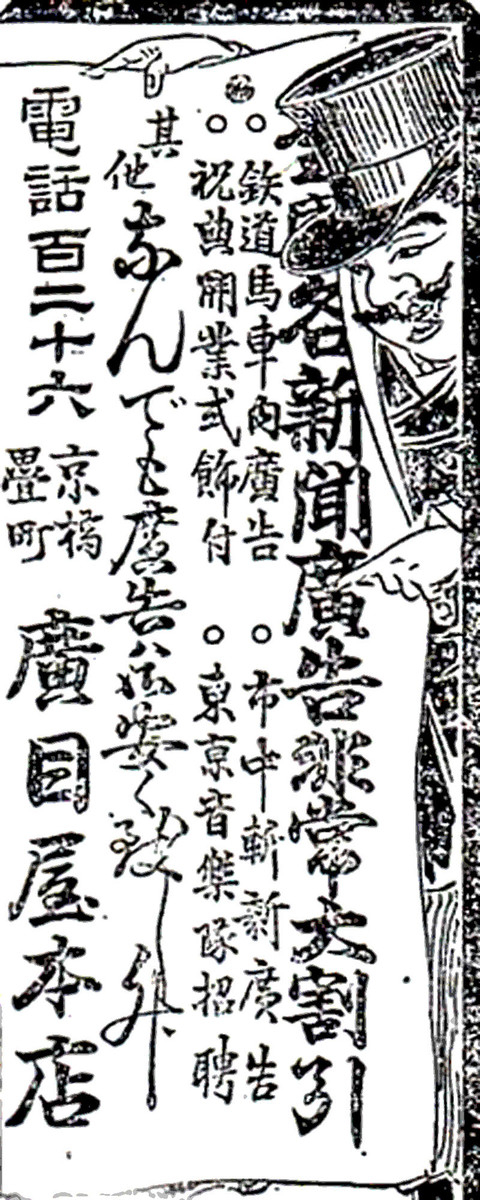 全国各新聞廣告非常大割引
○鉄道馬車内廣告 ○市中斬新廣告
○祝典開業式飾付 ○東京音楽隊招聘
其他なんでも廣告ハ安く致し升
電話百二十六
京橋
疊町
廣目屋本店